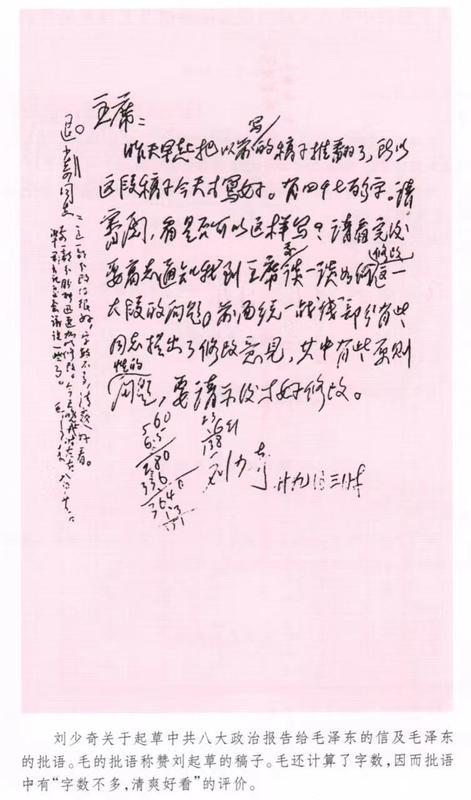 主席：
昨天早起把以前写的稿子推翻了，所以
这段稿子今天才写好。有四千七百字。请
审阅，看是否可以这样写？请看完后
要高志通知我到主席处谈一谈如何修改这一
大段的问题。前面统一战线部分有些
同志提出了修改意见，其中有些原则
性的问题，要请示后才好修改。
刘少奇
560
6.5
280
336
364
退少奇同志：这一部分改得很好，字数不多，清爽好看。
刘少奇关于起草中共八大政治报告给毛泽东的信及毛泽东
的批语。毛的批语称赞刘起草的稿子。毛还计算了字数，因而批语
中有“字数不多，清爽好看”的评价。